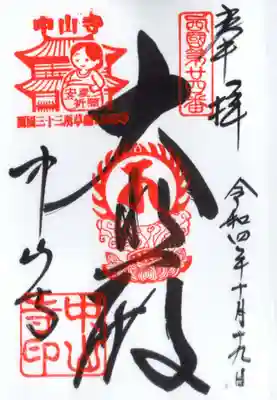 奉拝
西國第廿四番
令和四年十月十九日
大悲殿
中山寺
安産
祈願
西国三十三所草創
中山寺
中山
寺印